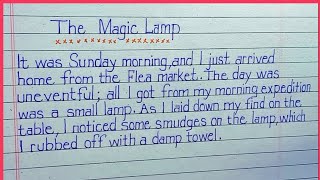 The Magic Lamp
It was Sunday morning, and I just arrived
home from the Flea market. The day was
uneventful; all I got from my morning expedition
was a small lamp. As I laid down my find on the
table, I noticed some smudges on the lamp, which
I rubbed off with a damp towel.